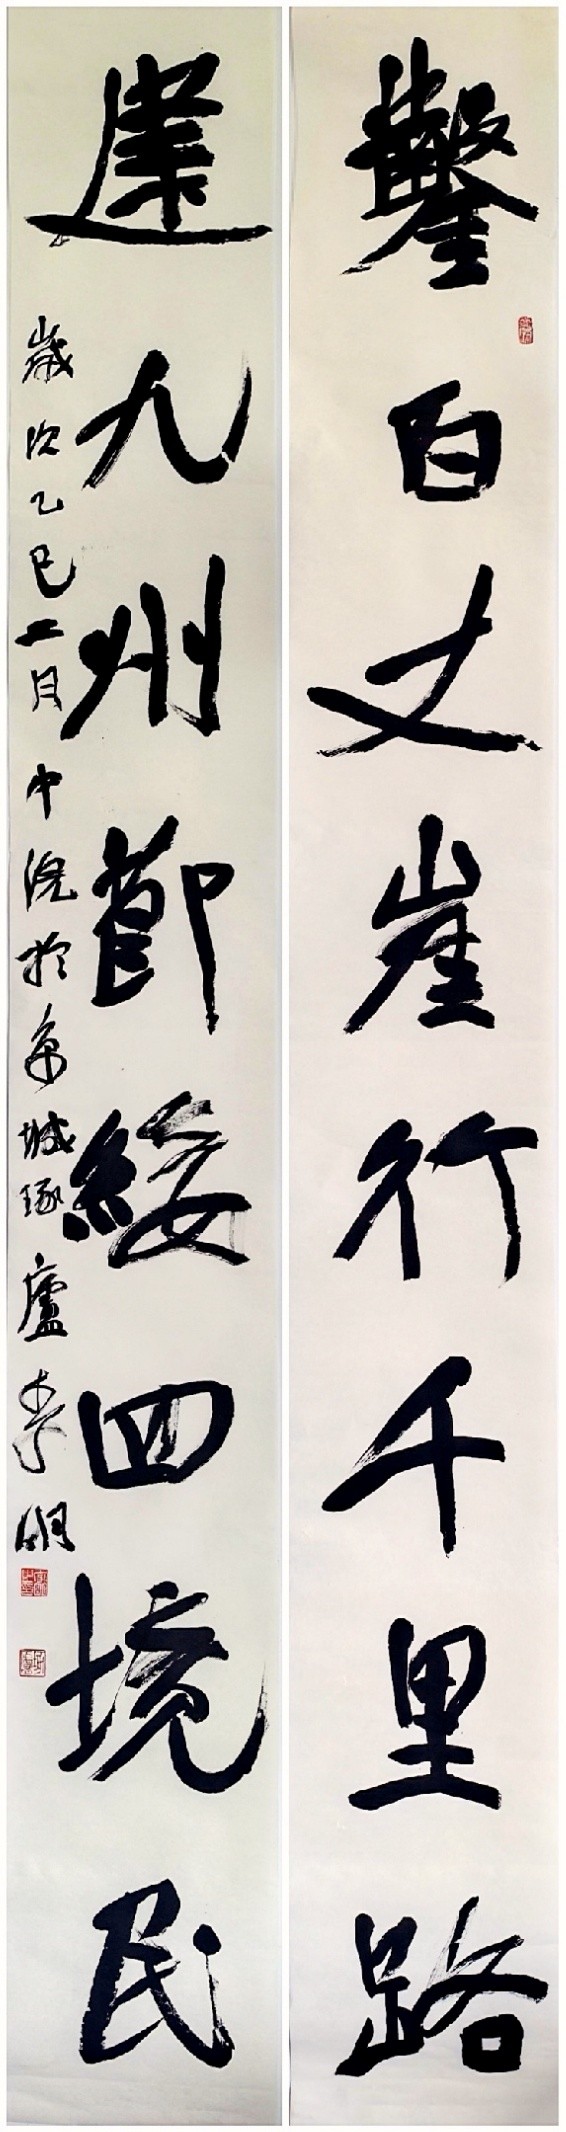 鑿百丈崖行千里路
建九州節綏四境民
歲次乙巳二月中浣於京城琢廬李明